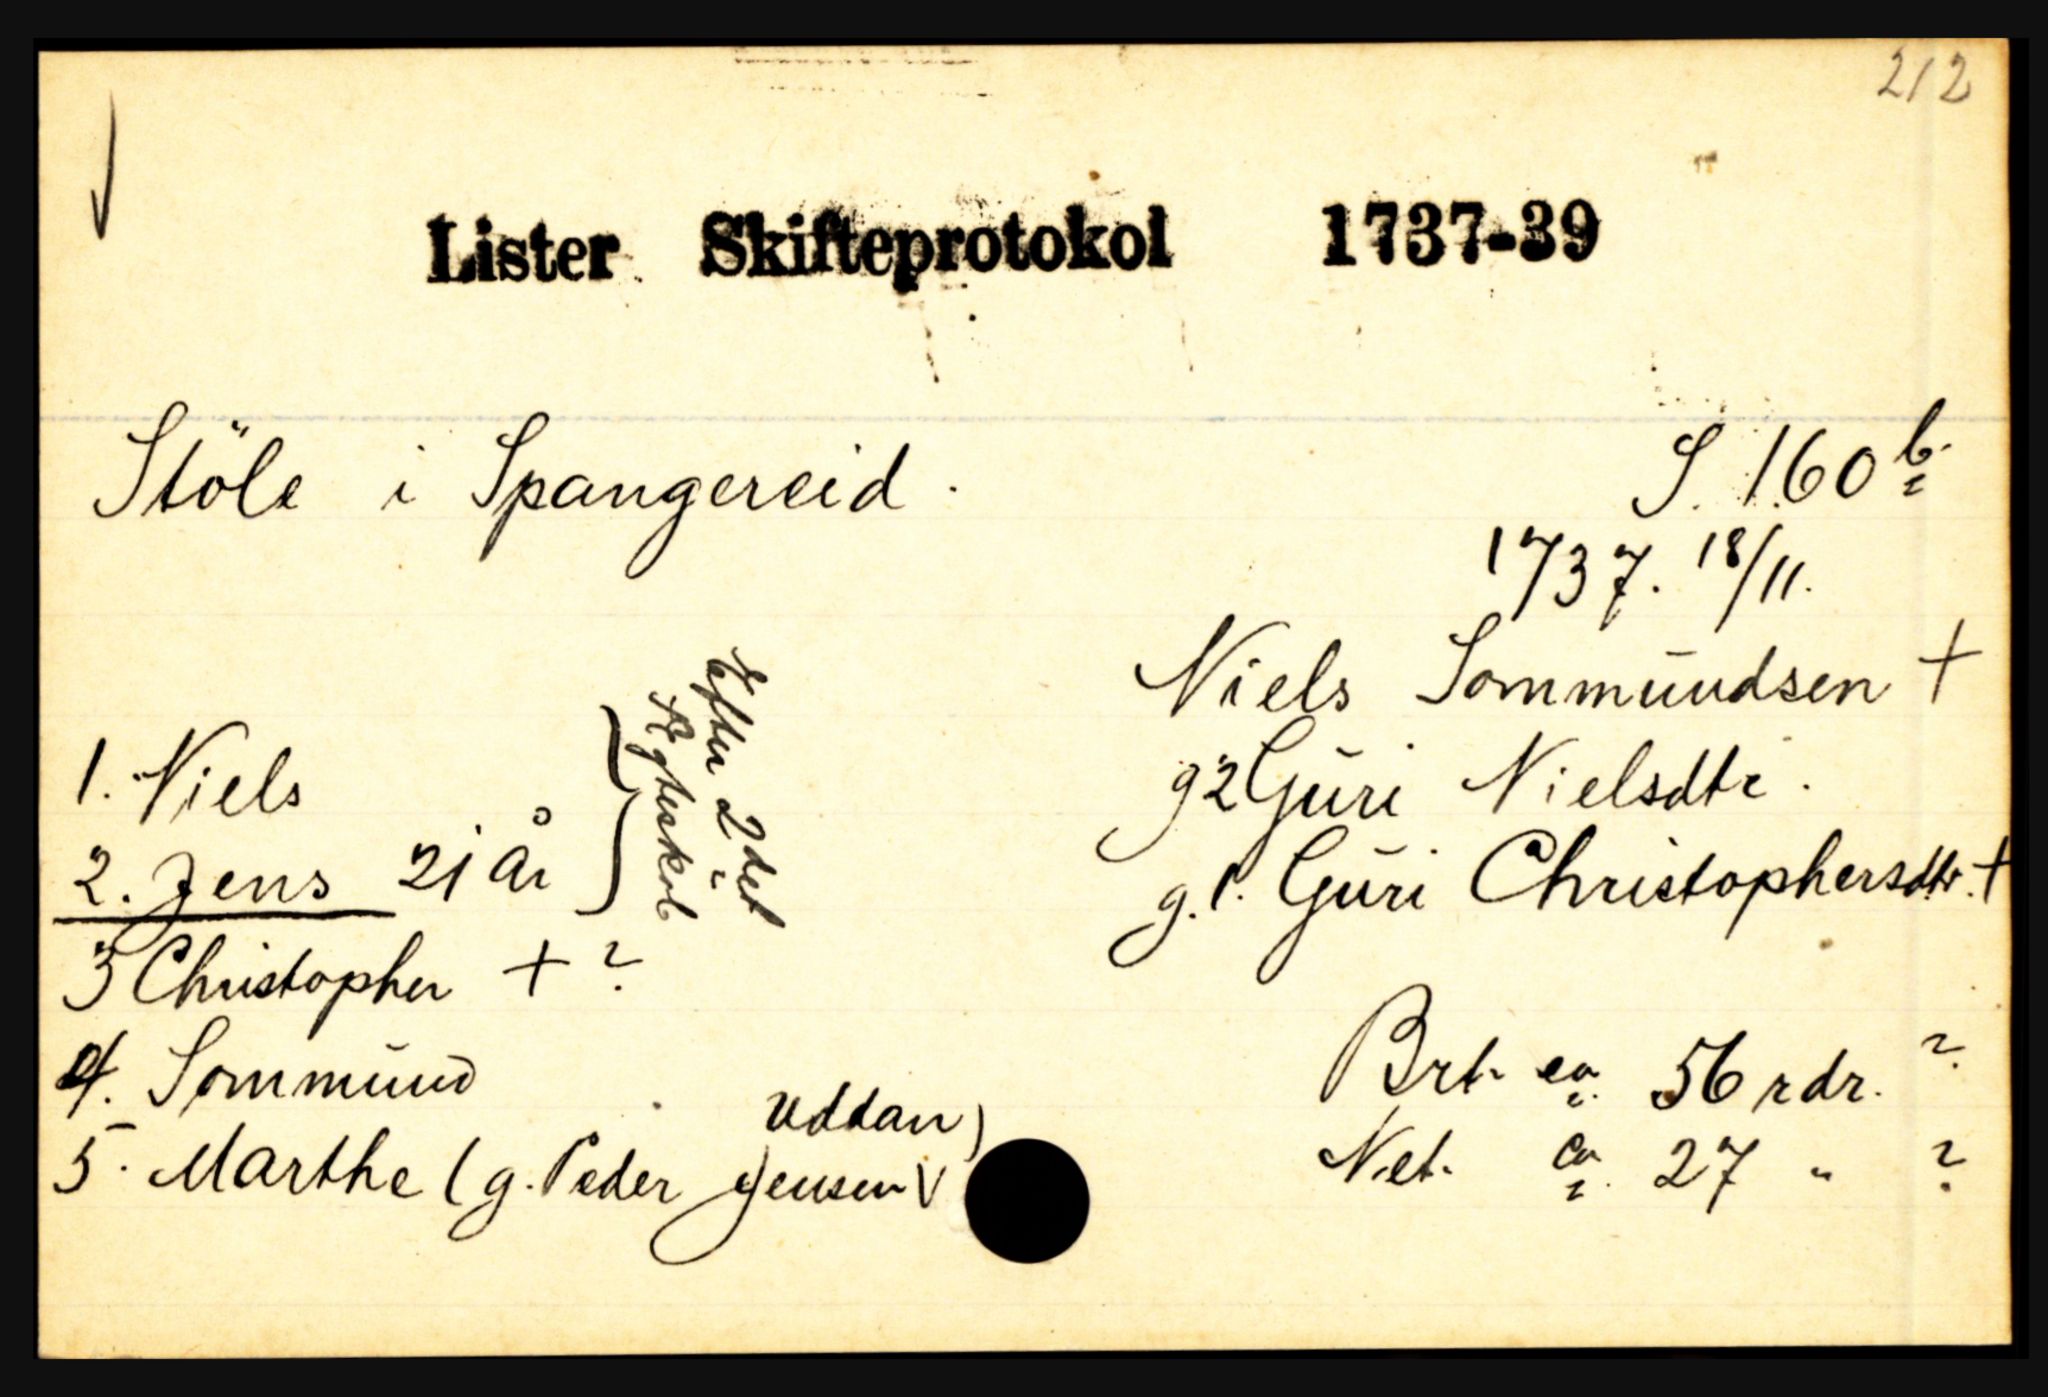 212
Lister Skifteprotokol 1737-39
Stöle i Spangereid. S. 160 b.
1737. 18/11.
Niels Sommundsen +
g2 Guri Nielsdtr.
g. 1. Guri Christophersdtr. +
1. Niels
2. Jens 21 år
Efter 2det
Ægteskab
3 Christopher + ?
4. Sommund
5. Marthe (g. Peder Jensen Uddan)
Brt. ca. 56 rdr. ?
Net. ca. 27 " ?